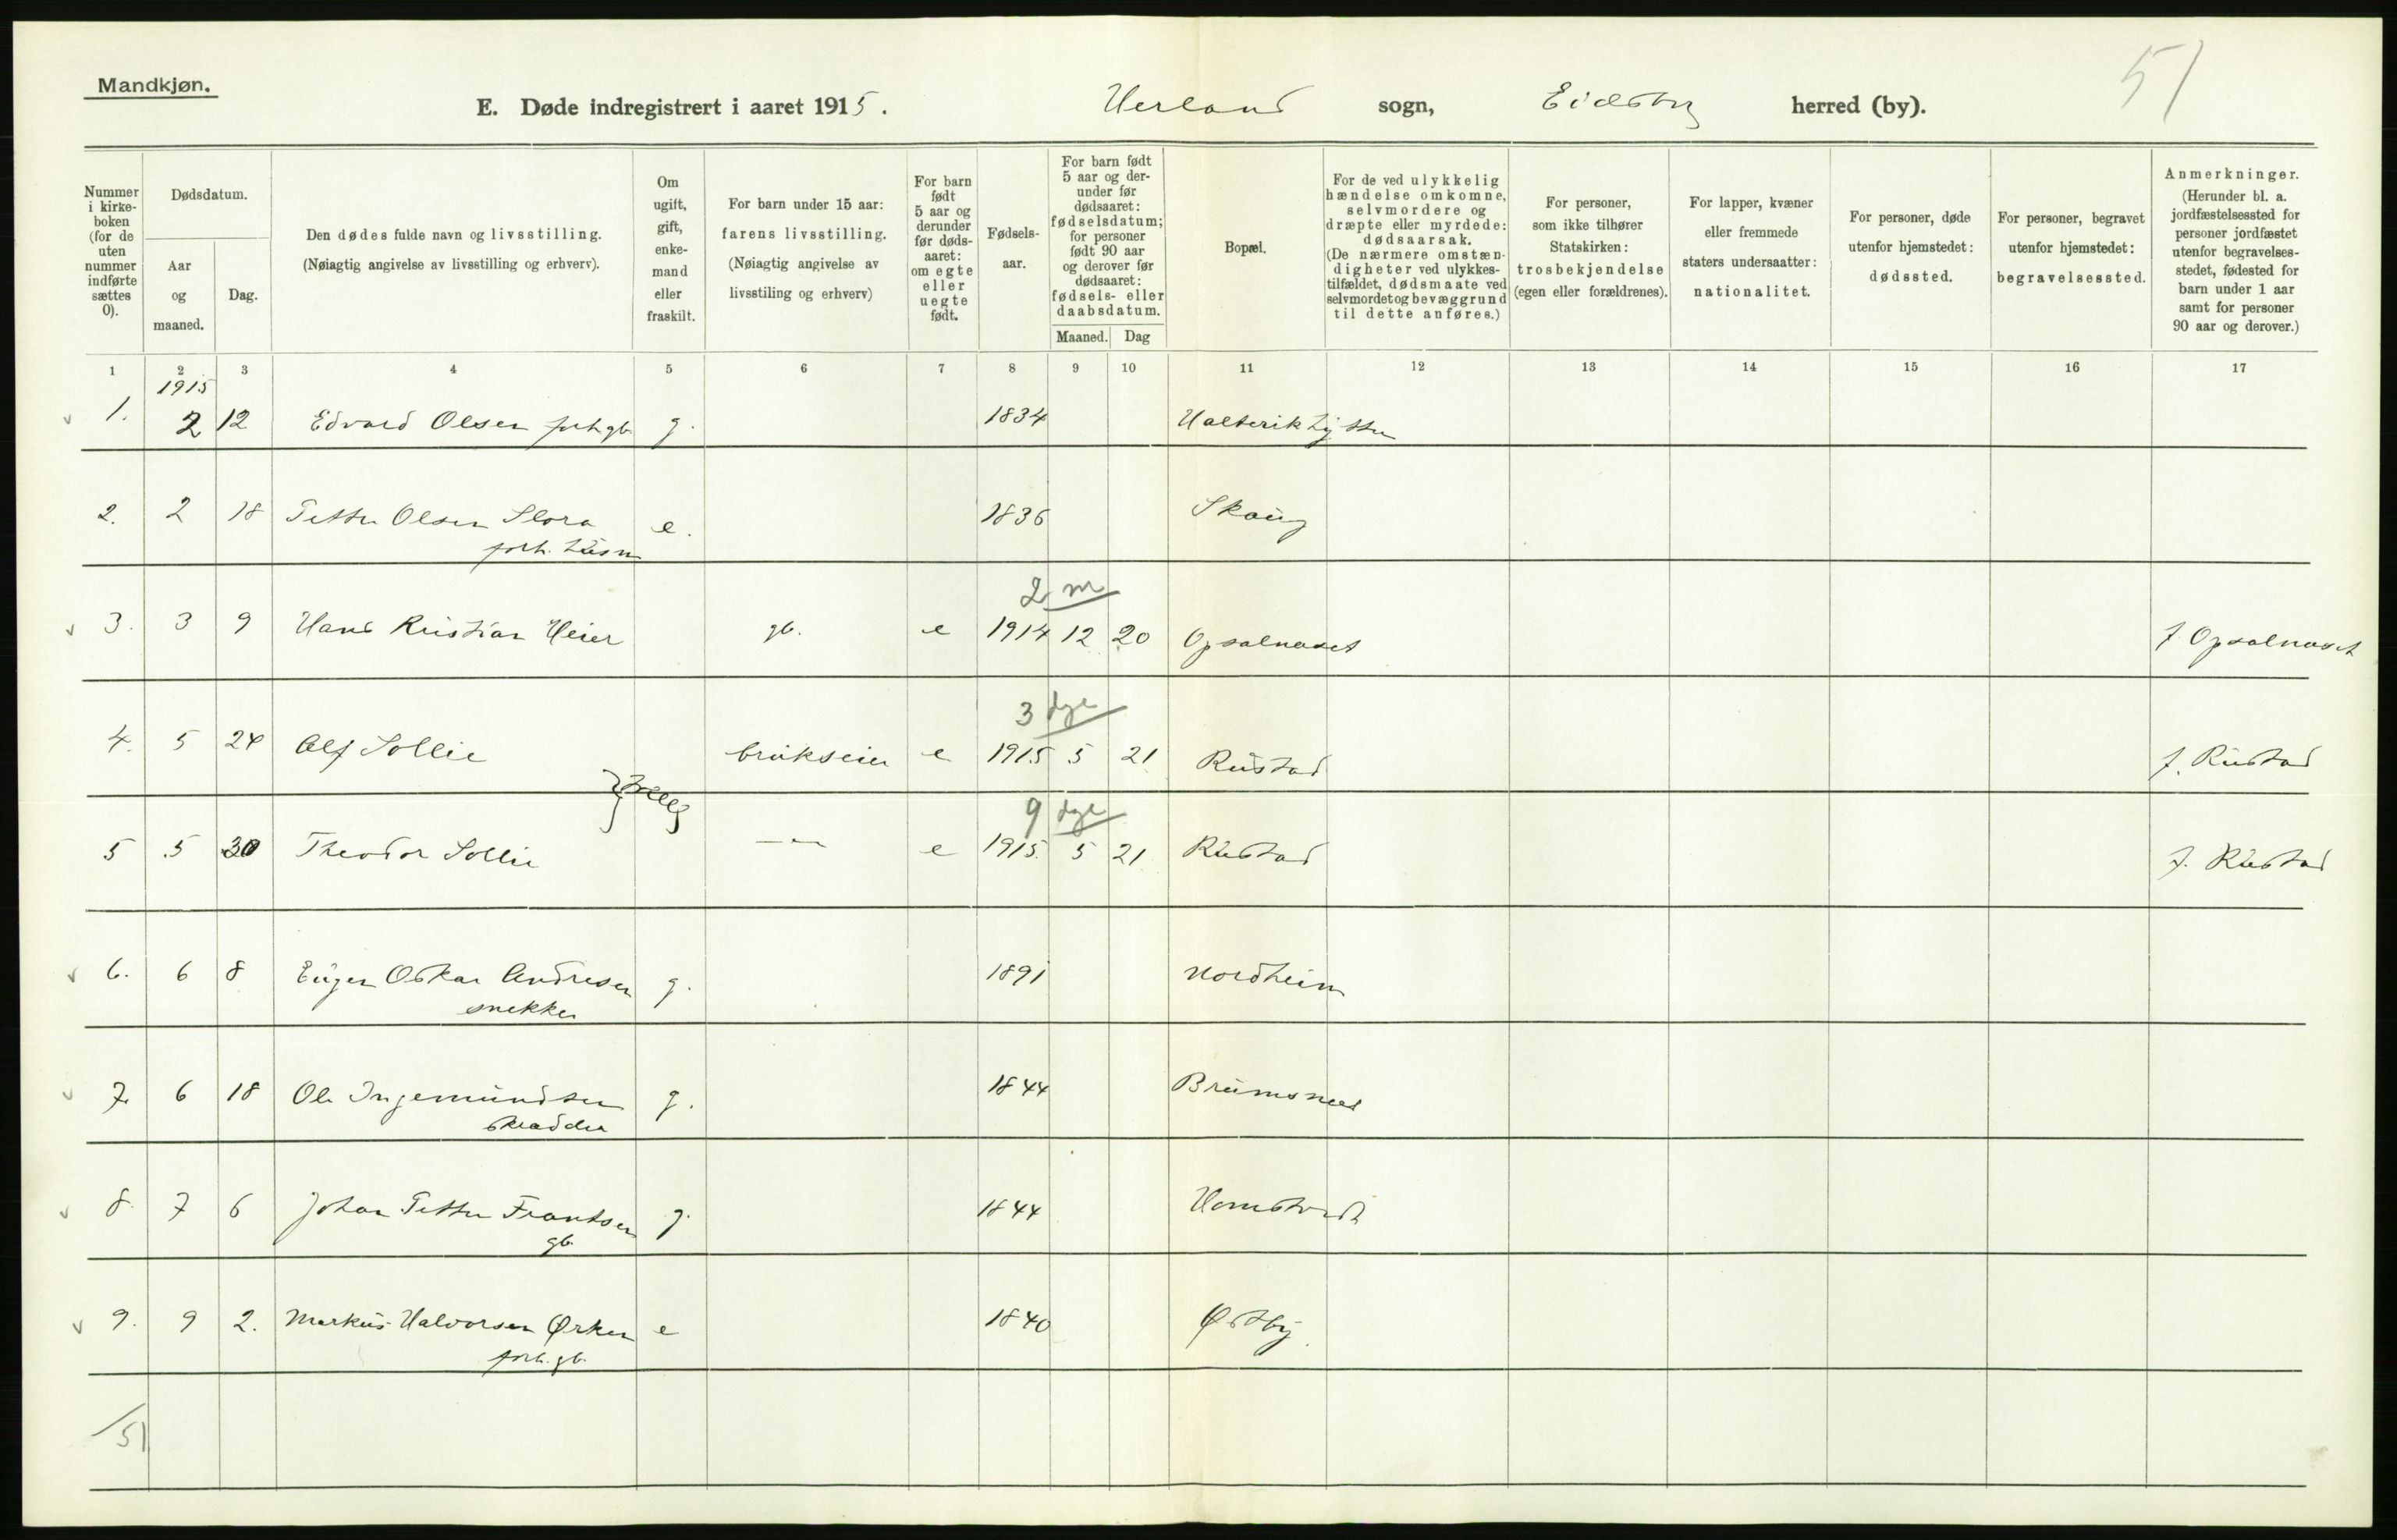 Mandkjøn.
51
E. Døde indregistrert i aaret 1915. Herland sogn, Eidsberg herred (by).
Nummer i kirke-boken (for de uten nummer indførte sættes 0).
Dødsdatum.
Aar og maaned.
Dag.
Den dødes fulde navn og livsstilling.
(Nøiagtig angivelse av livsstilling og erhverv).
Om ugift, gift, enke-mand eller fraskilt.
For barn under 15 aar: farens livsstilling. (Nøiagtig angivelse av livsstiling og erhverv)
For barn født 5 aar og derunder før døds-aaret: om egte eller uegte født.
Fødsels-aar.
For barn født 5 aar og der-under før dødsaaret: fødselsdatum; for personer født 90 aar og derover før dødsaaret: fødsels- eller daabsdatum.
Maaned. Dag
Bopæl.
For de ved ulykkelig hændelse omkomne, selvmordere og dræpte eller myrdede: dødsaarsak. (De nærmere omstæn-digheter ved ulykkes-tilfældet, dødsmaate ved selvmordet og bevæggrund til dette anføres.)
For personer, som ikke tilhører Statskirken: trosbekjendelse (egen eller forældrenes).
For lapper, kvæner eller fremmede staters undersaatter: nationalitet.
For personer, døde utenfor hjemstedet: dødssted.
For personer, begravet utenfor hjemstedet: begravelsessted.
Anmerkninger. (Herunder bl. a. jordfæstelsessted for personer jordfæstet utenfor begravelses-stedet, fødested for barn under 1 aar samt for personer 90 aar og derover.)
1 2 3 4 5 6 7 8 9 10 11 12 13 14 15 16 17
1915
1. 2 12 Edvard Olsen forh. gb. g. 1834
2. 2 18 Petter Olsen Slora e. 1836 Skaug
forh. husm
2 m
3. 3 9 Hans Kristian Heier gb. e 1914 12 20 Opsalnaset f Opsalnaset
3 dge
4. 5 24 Alf Sollie brukseier e 1915 5 21 Rustad f. Rustad
} tvillg
9 dge
5 5 30 Theodor Sollie — " — e 1915. 5 21 Rustad f. Rustad
6. 6 8 Eugen Oskar Andresen g. 1891 Nordheim
snekker
7. 6 18 Ole Ingemundsen g. 1844
skrædder
8. 7 6 Johan Petter Frantsen g. 1844
gb.
9. 9 2. Markus Halvorsen Ørken e 1840 Østby.
forh. gb.
/51